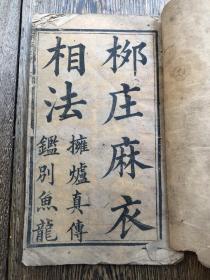 柳庄麻衣
相法
擁爐真傳
鑑別魚龍